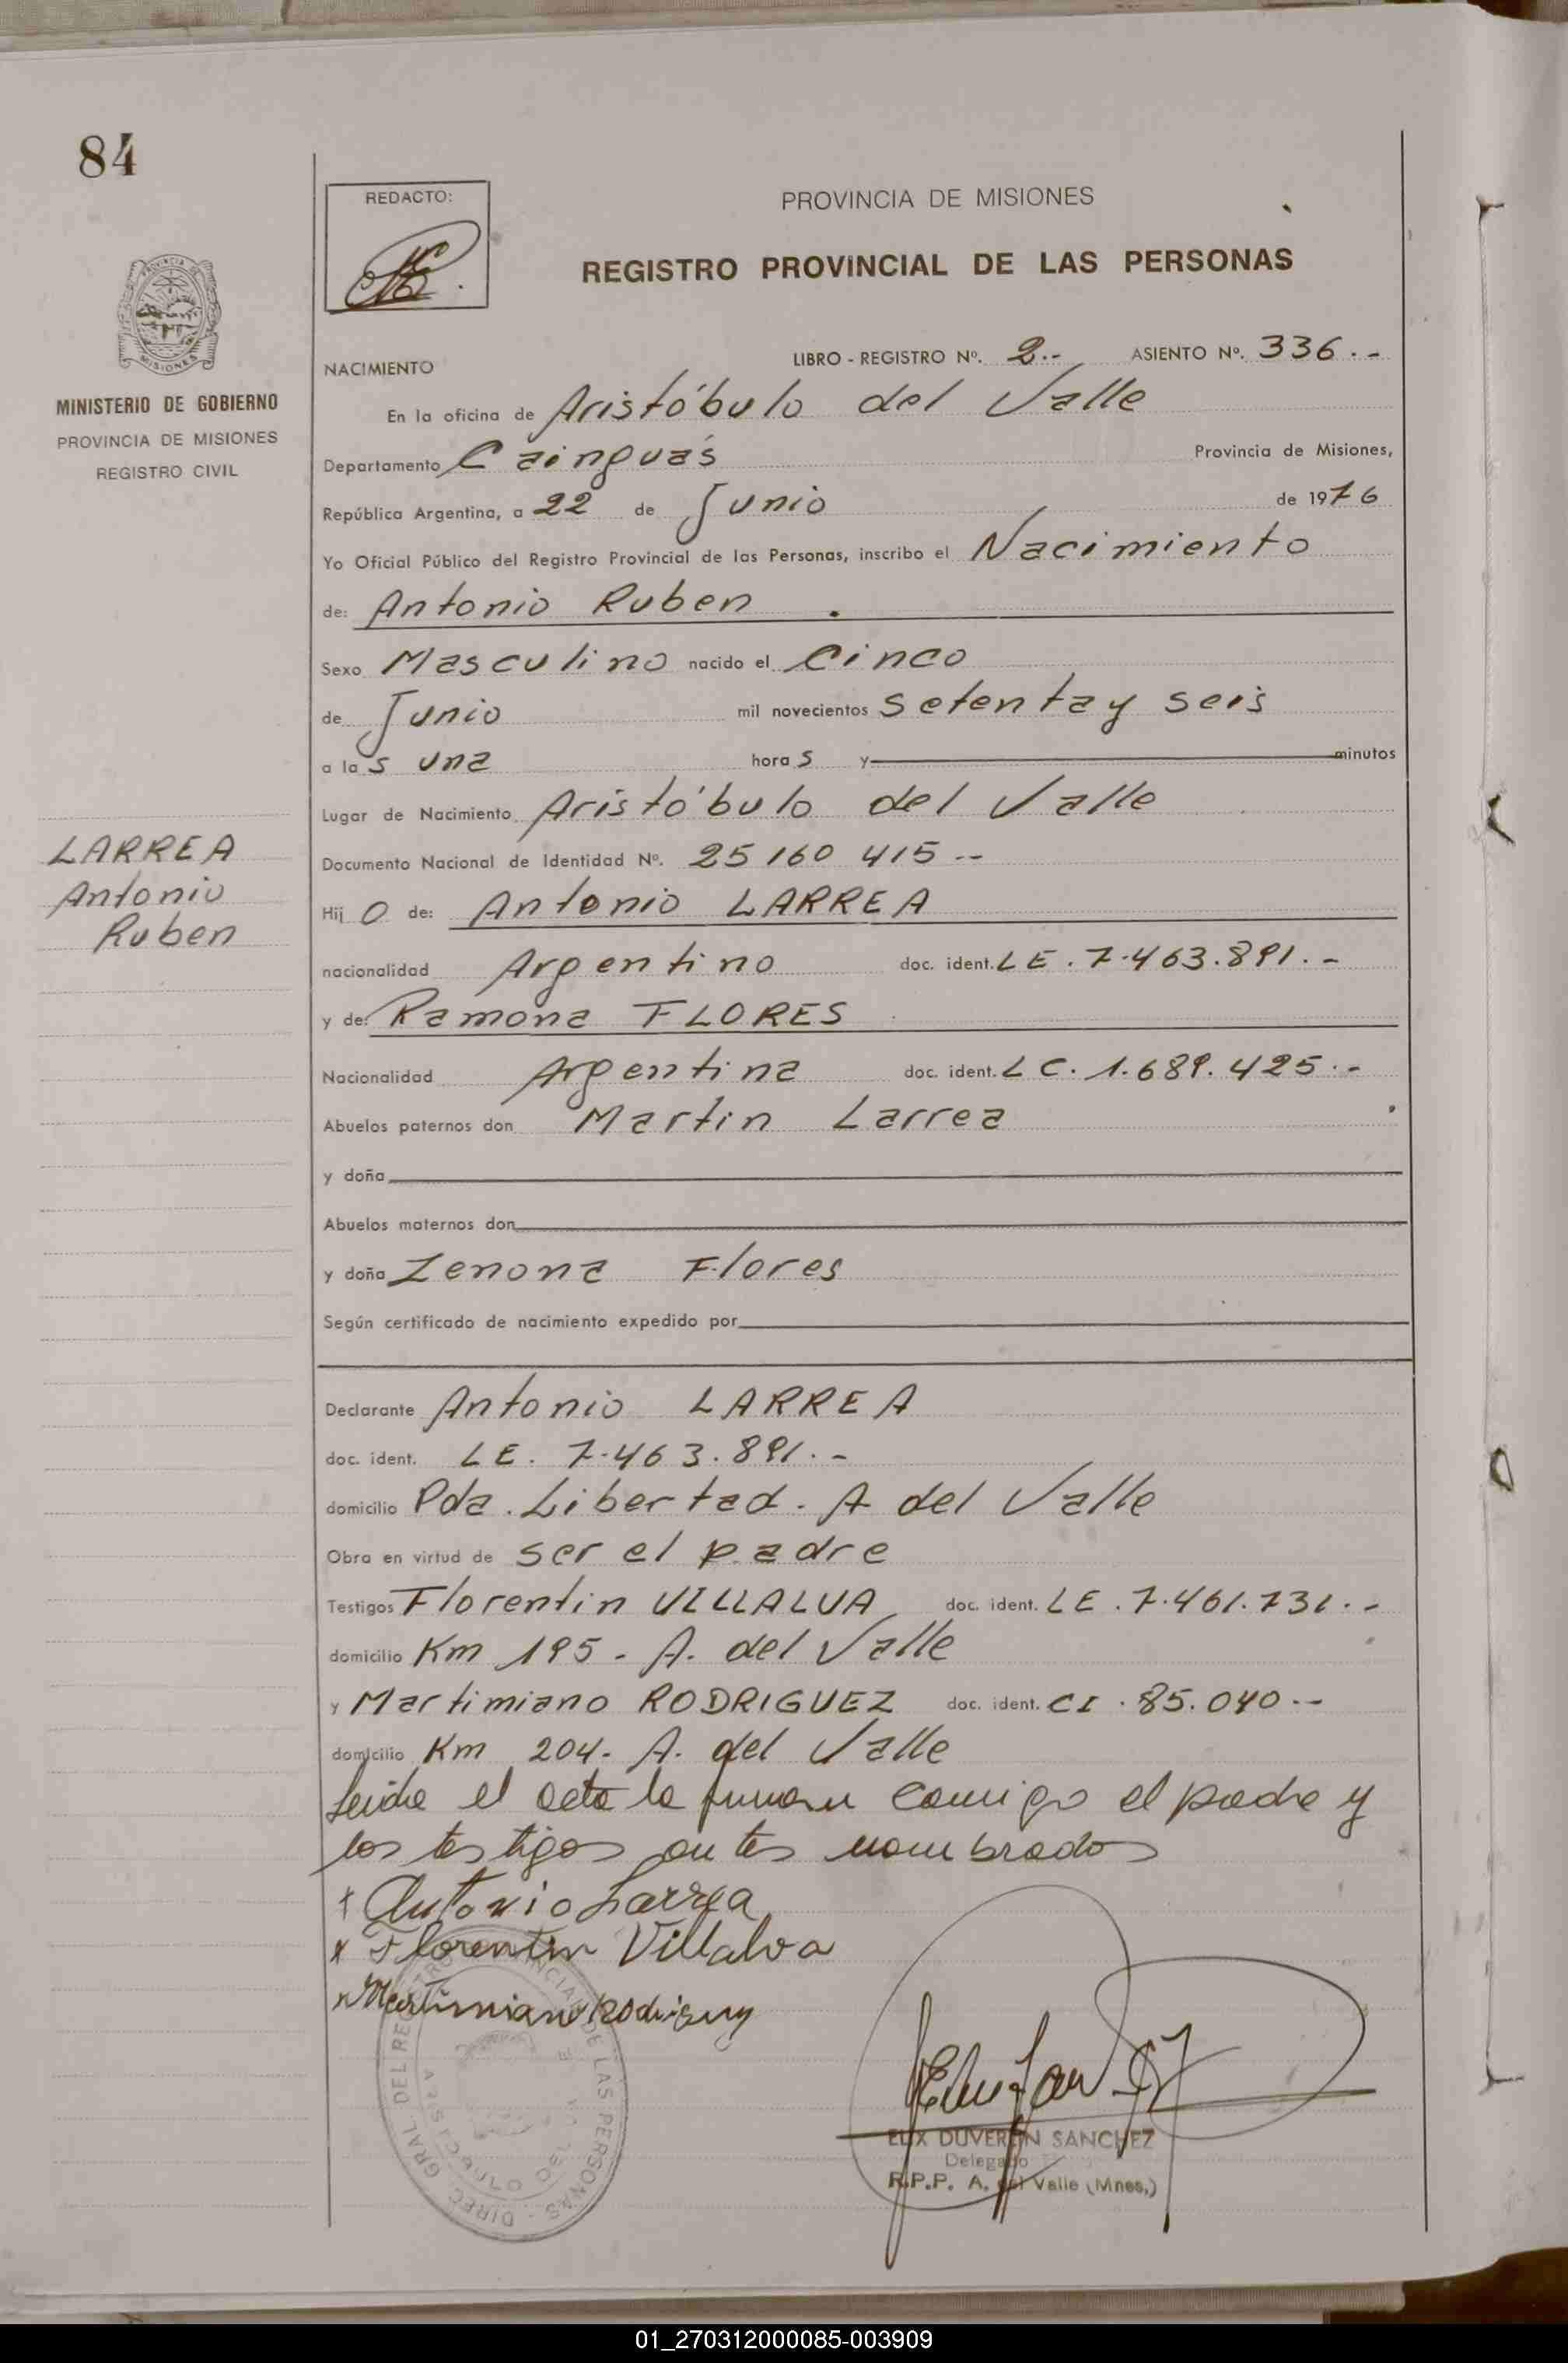 84
REDACTO:
PROVINCIA DE MISIONES
REGISTRO PROVINCIAL DE LAS PERSONAS
MINISTERIO DE GOBIERNO
PROVINCIA DE MISIONES
REGISTRO CIVIL
NACIMIENTO
LIBRO - REGISTRO Nº. 2.- ASIENTO Nº. 336.-
En la oficina de Aristóbulo del Valle
Departamento Cainguás Provincia de Misiones,
República Argentina, a 22 de Junio de 1976
Yo Oficial Público del Registro Provincial de las Personas, inscribo el Nacimiento
de: Antonio Ruben
Sexo Masculino nacido el Cinco
de Junio mil novecientos setenta y seis
a las una horas y minutos
Lugar de Nacimiento Aristóbulo del Valle
LARREA
Antonio
Ruben
Documento Nacional de Identidad Nº. 25 160 415 --
Hijo de: Antonio LARREA
nacionalidad Argentino doc. ident. LE. 7.463.891.-
y de: Ramona FLORES
Nacionalidad Argentina doc. ident. LC. 1.689.425.-
Abuelos paternos don Martin Larrea
y doña
Abuelos maternos don
y doña Zenona Flores
Según certificado de nacimiento expedido por
Declarante Antonio LARREA
doc. ident. LE. 7.463.891.-
domicilio Pda. Libertad. A del Valle
Obra en virtud de ser el padre
Testigos Florentin VILLALVA doc. ident. LE. 7.461.731.-
domicilio Km 195 - A. del Valle
y Martimiano RODRIGUEZ doc. ident. CI. 85.040.--
domicilio Km 204. A. del Valle
Leida el acta la firman conmigo el padre y
los testigos antes nombrados
Antonio Larrea
Florentin Villalva
Martimiano Rodriguez
ELIX DUVERLIN SANCHEZ
Delegado
R.P.P. A. del Valle (Mnes.)
01_270312000085-003909